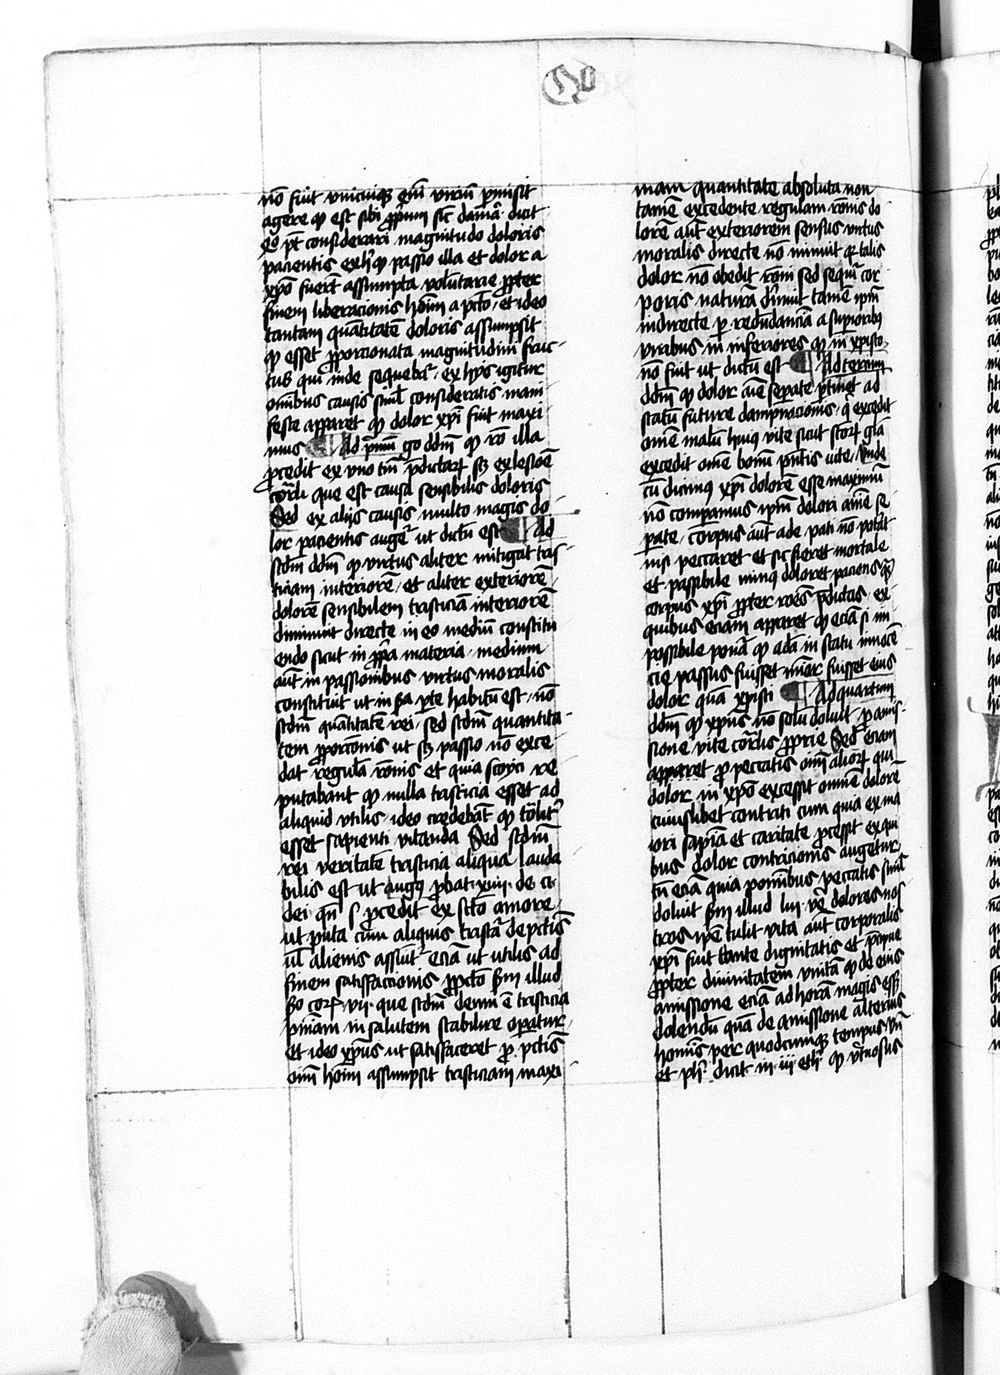 Qo
nō fuit unicuiqꝫ eni᷒ viriū p̄misit
agere qᵈ est sibi ꝓpriū sic damas᷒ dicit
qᵒ pt̄ considerari magnitudo doloris
pacientis ex hͦ qᵈ passio illa et dolor a
xpō fuerūt assumpta volūtarie ꝓpter
finem liberacionis hoīm a pctō et ideo
tantam quātitatē doloris assumpsit
qᵈ esset ꝓporcionata magnitudini fruc-
tus qui inde sequebat᷒ ex hys igitur
omībus causis simł consideratis mani
feste apparet qᵈ dolor xpī fuit maxi
mus Ad pͥmū gͦ dōm qᵈ rō illa
ꝓcedit ex uno tm̄ p̄dictorꝝ scꝫ ex lesiōe
corꝑali que est causa sensibilis doloris
Sed ex alijs causis multo magis do
lor pacientis auget᷒ ut dictū est Ad
scdm dōm qᵈ virtus aliter mitigat tris-
ticiam interiorē et aliter exteriorē
dolorē sensibilem tristiciā interiorē
diminuit directe in eo mediū constitu
endo sicut in ꝓpria materia medium
aūt in passionibus virtus moralis
constituit ut in sᵃ pͭe habitū est nō
scdm quātitatē rei sed scdm quantita
tem ꝓporcōnis ut scꝫ passio nō exce
dat regulā rōnis et quia stoyci re
putabant qᵈ nulla tristicia esset ad
aliquid utilis ideo credebāt qᵈ totaliter
esset sapienti vitanda Sed scdm
rei veritatē tristicia aliqua lauda
bilis est ut augꝰ ꝓbat xiiii de ci
dei qn̄ s ꝓcedit ex scō amore
ut puta cum aliquis tristat᷒ de pctīs
ul̓ alienis assumit᷒ eciā ut utilis ad
finem satisfactionis ꝓ pctō sm illud
ii corꝭ vii que scdm deum ē tristicia
pniāiam in salutem stabilire operatur
et ideo xpūs ut satisfaceret ꝓ pctīs
oīm hoīm assumpsit tristiciam maxi
mam quantitate absoluta non
tamē excedente regulam rōnis do
lorē aūt exteriorem sensus virtus
moralis directe nō minuit qꝛ talis
dolor nō obedit rōni sed sequit᷒ cor
poris naturā diminuit tamē ipm̄
indirecte ꝑ redūdanciā a supioribꝫ
viribus in inferiores qᵈ in xpisto
nō fuit ut dictū est Ad tercium
dōm qᵈ dolor aīe sepate ꝑtinet ad
statū future dampnacionis q̄ excedit
omē malū huiꝰ vite sicut scōrꝝ gła
excedit omē bonū pn̄tis vite unde
cū dicimꝰ xpī dolorē esse maximū
nō comparamus ipm̄ dolori aīe se
pate corpus aūt ade pati nō poterat
nisi peccaret et sic fieret mortale
et passibile minꝰ doloret paciens qꝫ
corpus xpī ꝓpter rōes p̄dictas ex
quibus eciam apparet qᵈ eciā si im
possibile ponat᷒ qᵈ adā in statu innocē
cie passus fuisset minor fuisset eius
dolor quā xpisti Ad quartum
dōm qᵈ xpūs nō solū doluit ꝓ amis
sione vite corꝑalis ꝓprie Sed eciam
apparet ꝓ peccatis oīm aliorꝝ qui
dolor in xpō excessit omnē dolorē
cuiuslibet contriti tum quia ex ma
iori sapīa et caritate ꝓcessit ex qui
bus dolor contricionis augetur
tū eciā quia ꝓ omībus peccatis simł
doluit sm illud liii vē dolores nos
tros ipē tulit vita aūt corporalis
xpī fuit tante dignitatis et p̄cipue
ꝓpter diuinitatem unitā qᵈ de eius
amissione eciā ad horā magis esset
dolendū quā de amissione alterius
hominis per quodcumqꝫ tempus un̄
et phs dicit in iii ethi qᵈ virtuosus